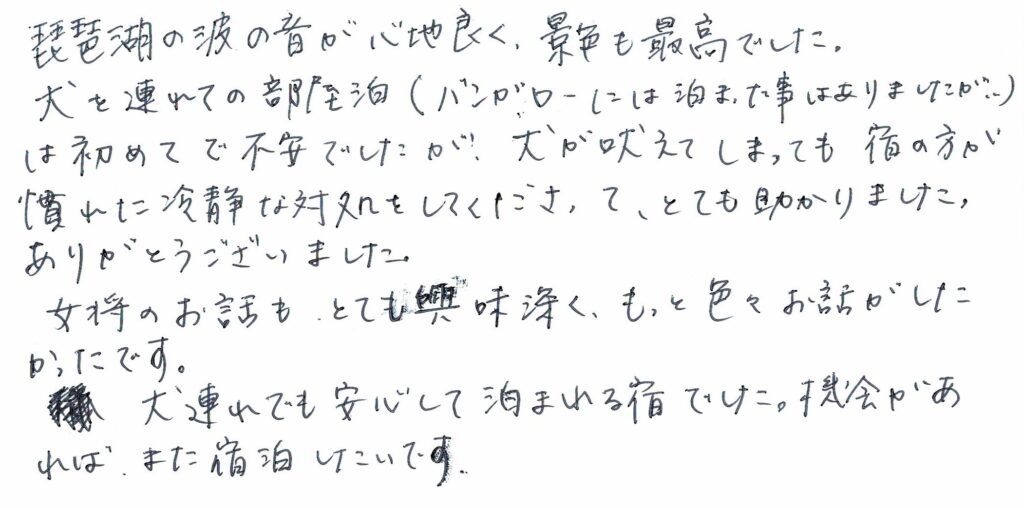 琵琶湖の波の音が心地良く、景色も最高でした。
犬を連れての部屋泊（バンガローには泊まった事はありましたが…）
は初めてで不安でしたが、犬が吠えてしまっても宿の方が
慣れた冷静な対処をしてくださって、とても助かりました。
ありがとうございました。
女将のお話も、とても興味深く、もっと色々お話がした
かったです。
犬連れでも安心して泊まれる宿でした。機会があ
れば、また宿泊したいです。